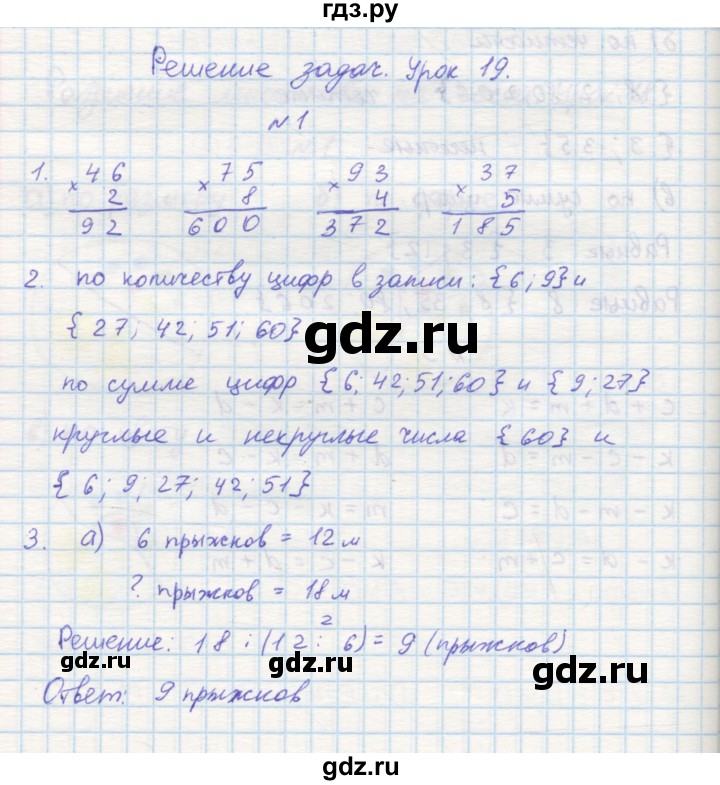 гдз.ру
Решение задач. Урок 19.
№1
1. × 46 × 75 × 93 × 37
2 8 4 5
92 600 372 185
2. по количеству цифр в записи: {6; 9} и
{27; 42; 51; 60}
по сумме цифр {6; 42; 51; 60} и {9; 27}
круглые и некруглые числа {60} и
{6; 9; 27; 42; 51}
3. а) 6 прыжков = 12 м
? прыжков = 18 м
2
Решение: 18 : (12 : 6) = 9 (прыжков)
Ответ: 9 прыжков
gdz.ru
gdz.ru
gdz.ru
gdz.ru
gdz.ru
gdz.ru
gdz.ru